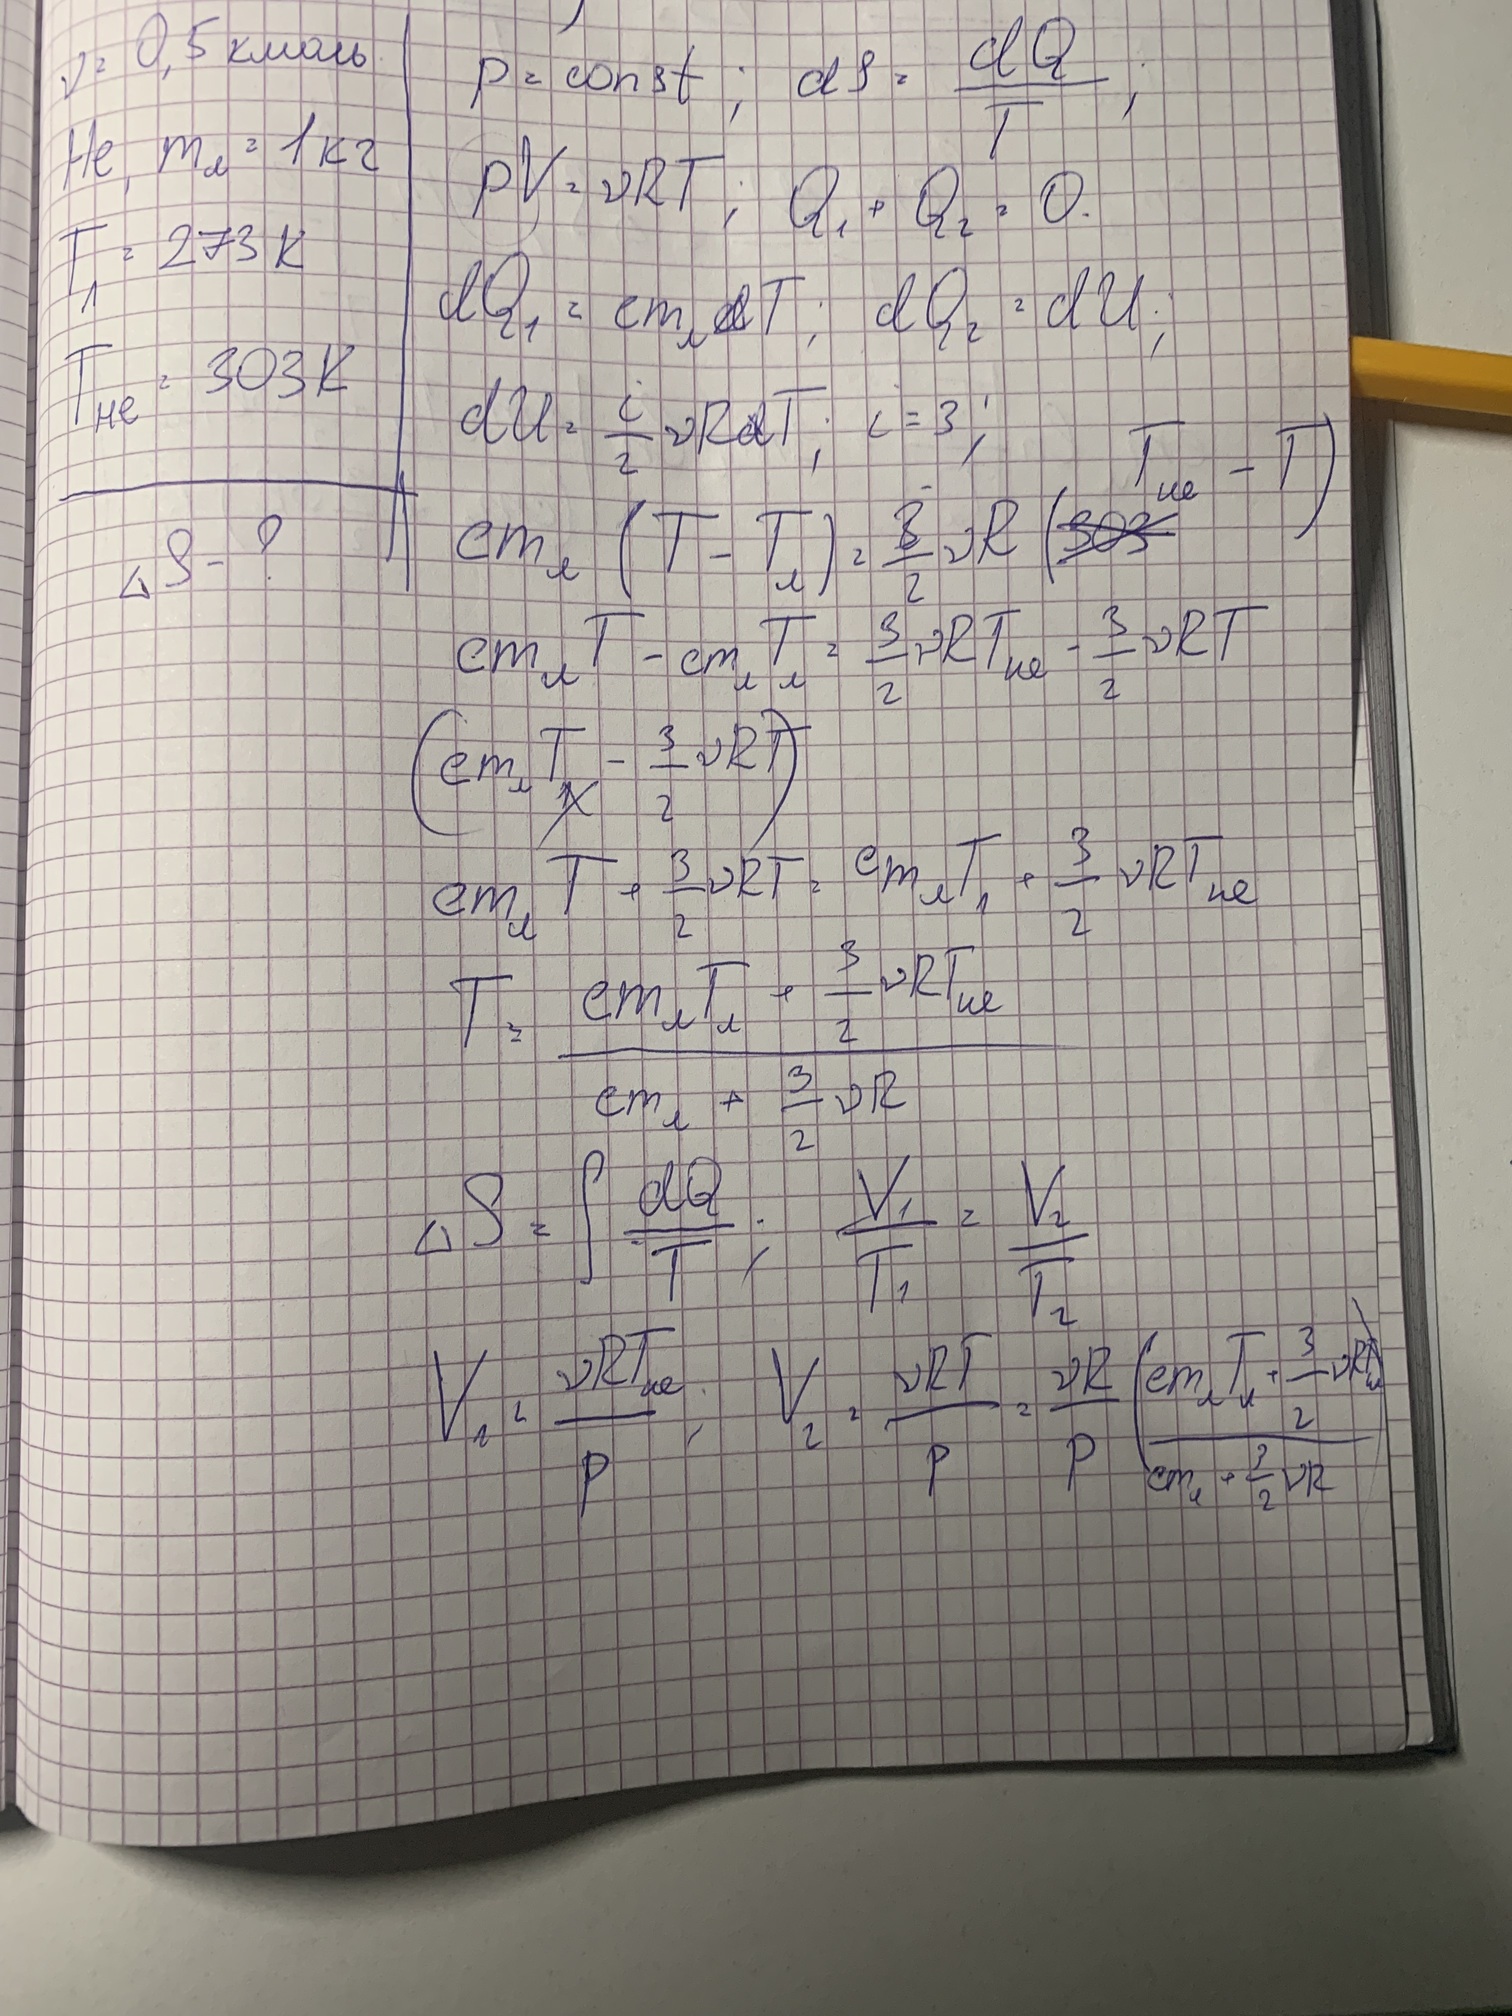 ν = 0,5 кмоль
He, mл = 1 кг
Tл = 273 K
THe = 303 K
ΔS - ?
p = const ; dS = dQ/T ;
pV = νRT ; Q1 + Q2 = 0.
dQ1 = cmл dT ; dQ2 = dU ;
dU = i/2 νRdT ; i = 3 ;
cmл (T - Tл) = 3/2 νR (303 THe - T)
cmлT - cmлTл = 3/2 νRTHe - 3/2 νRT
(cmлT - 3/2 νRT)
cmлT + 3/2 νRT = cmлTл + 3/2 νRTHe
T = (cmлTл + 3/2 νRTHe)/(cmл + 3/2 νR)
ΔS = ∫ dQ/T ; V1/T1 = V2/T2
V1 = νRTHe/p ; V2 = νRT/p = νR/p ((cmлTл + 3/2 νRTHe)/(cmл + 3/2 νR))